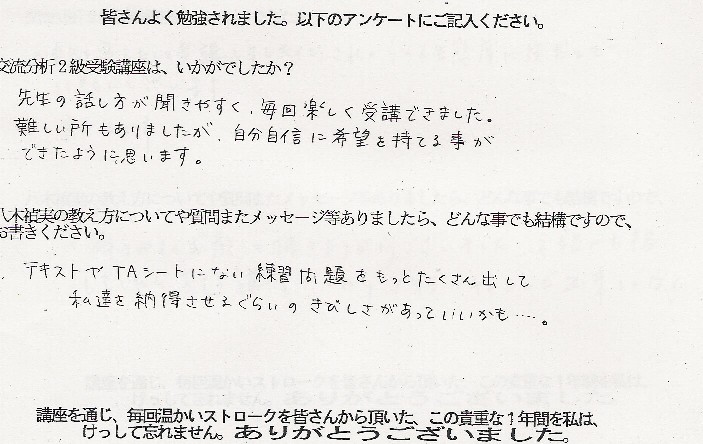 皆さんよく勉強されました。以下のアンケートにご記入ください。
交流分析2級受験講座は、いかがでしたか?
先生の話し方が聞きやすく、毎回楽しく受講できました。
難しい所もありましたが、自分自信に希望を持てる事が
できたように思います。
八木禎実の教え方についてや質問またメッセージ等ありましたら、どんな事でも結構ですので、
お書きください。
テキストやTAシートにない練習問題をもっとたくさん出して
私達を納得させるぐらいのきびしさがあっていいかも……。
講座を通じ、毎回温かいストロークを皆さんから頂いた、この貴重な1年間を私は、
けっして忘れません。ありがとうございました。